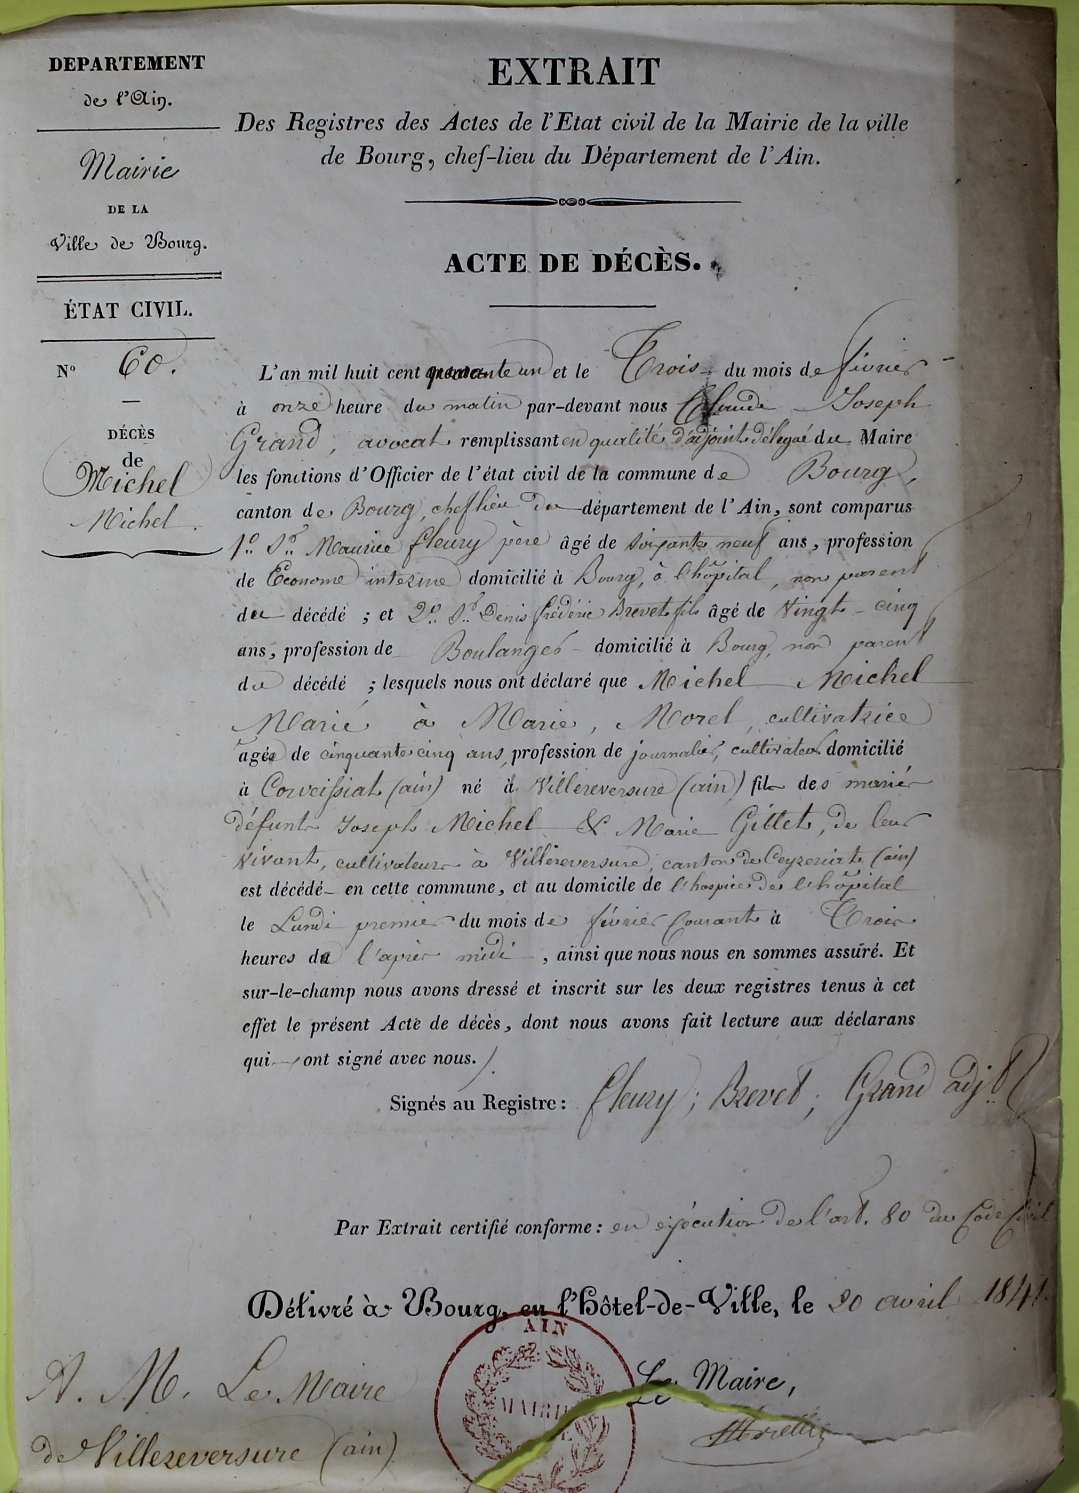 DEPARTEMENT
de l'Ain.
Mairie
DE LA
Ville de Bourg.
ÉTAT CIVIL.
N° 60.
DÉCÈS
de
Michel
Michel.
EXTRAIT
Des Registres des Actes de l'Etat civil de la Mairie de la ville
de Bourg, chef-lieu du Département de l'Ain.
ACTE DE DÉCÈS.
L'an mil huit cent quarante un et le Trois du mois de février
à onze heure du matin par-devant nous Claude Joseph
Grand, avocat remplissant en qualité d'adjoint délégué du Maire
les fonctions d'Officier de l'état civil de la commune de Bourg,
canton de Bourg, chef lieu du département de l'Ain, sont comparus
1° Sr. Maurice fleury père âgé de soixante neuf ans, profession
de Econome interime domicilié à Bourg, à l'hôpital, non parent
du décédé ; et 2° Sr. Denis frédéric Brevet fils âgé de Vingt-cinq
ans, profession de Boulanger domicilié à Bourg, non parent
du décédé ; lesquels nous ont déclaré que Michel Michel
Marié à Marie, Morel, cultivatrice
âgé de cinquante cinq ans, profession de journalier, cultivateur domicilié
à Corveissiat (ain) né à Villereversure (ain) fils des mariés
défunts Joseph Michel & Marie Gillet, de leur
vivant, cultivateurs à Villereversure, canton de Ceyzeriat (ain)
est décédé en cette commune, et au domicile de l'hospice de l'hôpital
le Lundi premier du mois de février Courant à Trois
heures de l'après midi, ainsi que nous nous en sommes assuré. Et
sur-le-champ nous avons dressé et inscrit sur les deux registres tenus à cet
effet le présent Acte de décès, dont nous avons fait lecture aux déclarans
qui ont signé avec nous.
Signés au Registre : fleury ; Brevet ; Grand adjt.
Par Extrait certifié conforme : en exécution de l'art. 80 du Code Civil
Délivré à Bourg, en l'Hôtel-de-Ville, le 20 avril 1841.
AIN
MAIRIE
Le Maire,
A. M. Le Maire
de Villereversure (ain)